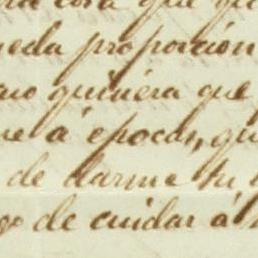 cosa que
ueda proporción
quiciera que
ue á epocas, qu
de darme tu
go de cuidar á